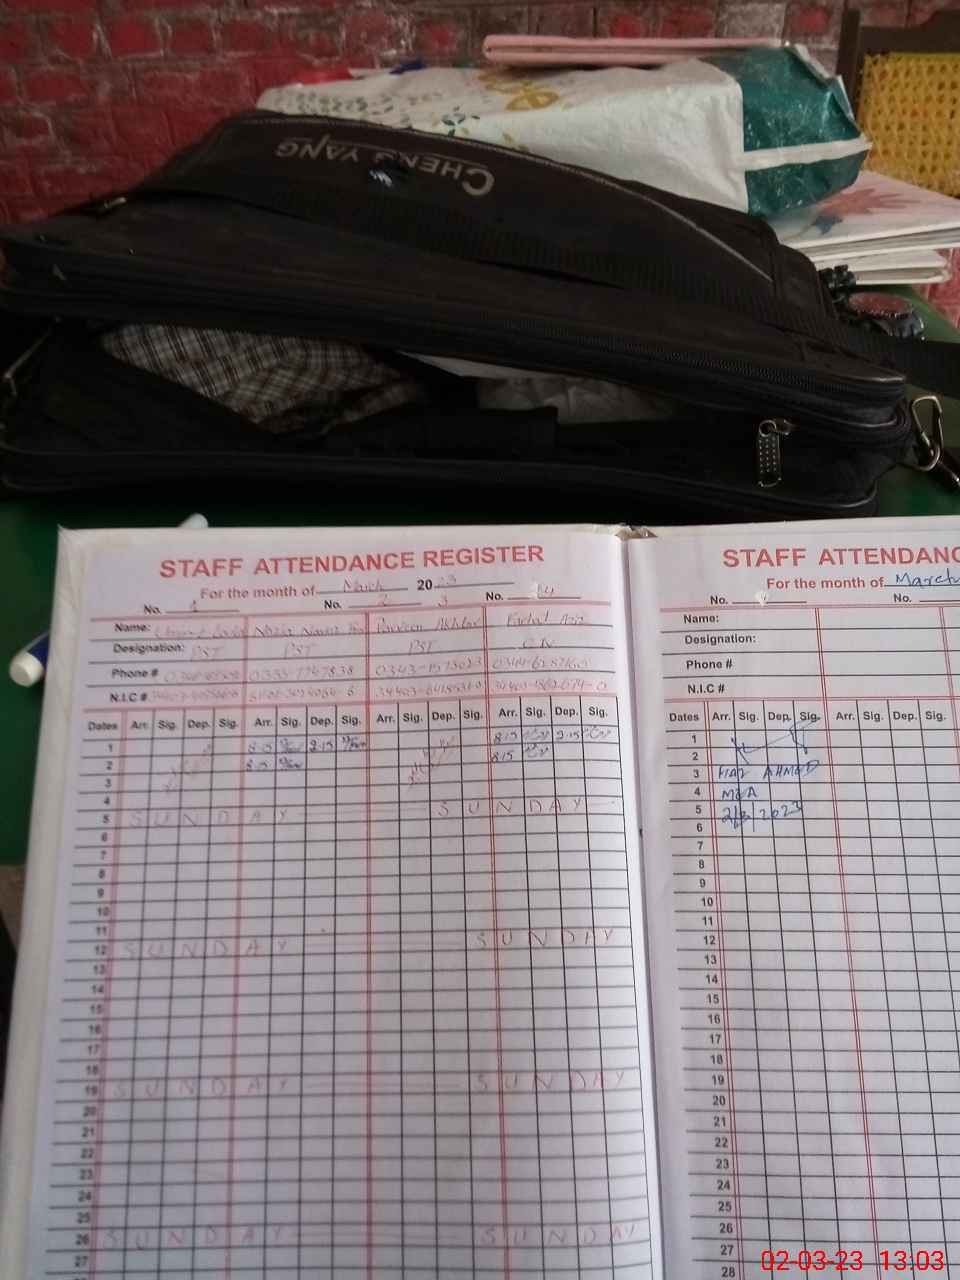 CHENG YANG
STAFF ATTENDANCE REGISTER
For the month of March 2023
No. 1 No. 2 3 No. 4
Name: Nazia Parveen Akhtar
Designation: PST PST PST CN
Phone # 0333-7767838 0343-1573023
N.I.C #
Dates Arr. Sig. Dep. Sig. Arr. Sig. Dep. Sig. Arr. Sig. Dep. Sig. Arr. Sig. Dep. Sig.
1 8:15 2:15 8:15 2:15
2 8:15 8:15
3
4
5 SUNDAY SUNDAY
6
7
8
9
10
11
12 SUNDAY SUNDAY
13
14
15
16
17
18
19 SUNDAY SUNDAY
20
21
22
23
24
25
26 SUNDAY SUNDAY
27
STAFF ATTENDANC
For the month of March
No. No.
Name:
Designation:
Phone #
N.I.C #
Dates Arr. Sig. Dep. Sig. Arr. Sig. Dep. Sig.
1
2
3 AHMED
4 MEA
5 2/3/2023
6
7
8
9
10
11
12
13
14
15
16
17
18
19
20
21
22
23
24
25
26
27
28
02-03-23 13:03